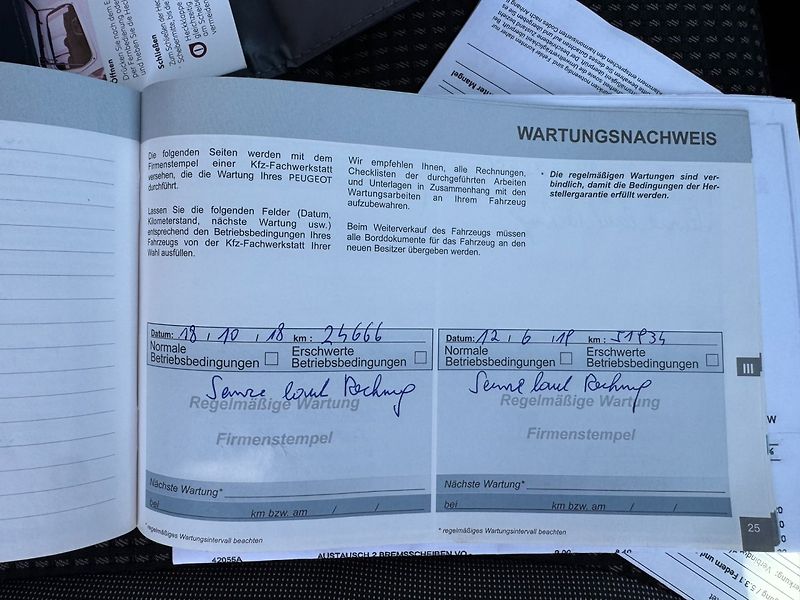 Öffnen
Schließen
WARTUNGSNACHWEIS
Die folgenden Seiten werden mit dem
Firmenstempel einer Kfz-Fachwerkstatt
versehen, die die Wartung Ihres PEUGEOT
durchführt.
Lassen Sie die folgenden Felder (Datum,
Kilometerstand, nächste Wartung usw.)
entsprechend den Betriebsbedingungen Ihres
Fahrzeugs von der Kfz-Fachwerkstatt Ihrer
Wahl ausfüllen.
Wir empfehlen Ihnen, alle Rechnungen,
Checklisten der durchgeführten Arbeiten
und Unterlagen in Zusammenhang mit den
Wartungsarbeiten an Ihrem Fahrzeug
aufzubewahren.
Beim Weiterverkauf des Fahrzeugs müssen
alle Borddokumente für das Fahrzeug an den
neuen Besitzer übergeben werden.
* Die regelmäßigen Wartungen sind ver-
bindlich, damit die Bedingungen der Her-
stellergarantie erfüllt werden.
Datum: 18 / 10 / 18 km : 24666
Normale
Betriebsbedingungen
Erschwerte
Betriebsbedingungen
Service laut Rechnung
Regelmäßige Wartung
Firmenstempel
Nächste Wartung*
bei km bzw. am / /
* regelmäßiges Wartungsintervall beachten
Datum: 12 / 6 / 19 km : 51934
Normale
Betriebsbedingungen
Erschwerte
Betriebsbedingungen
Service laut Rechnung
Regelmäßige Wartung
Firmenstempel
Nächste Wartung*
bei km bzw. am / /
* regelmäßiges Wartungsintervall beachten
III
25
42055A AUSTAUSCH 2 BREMSSCHEIBEN VO